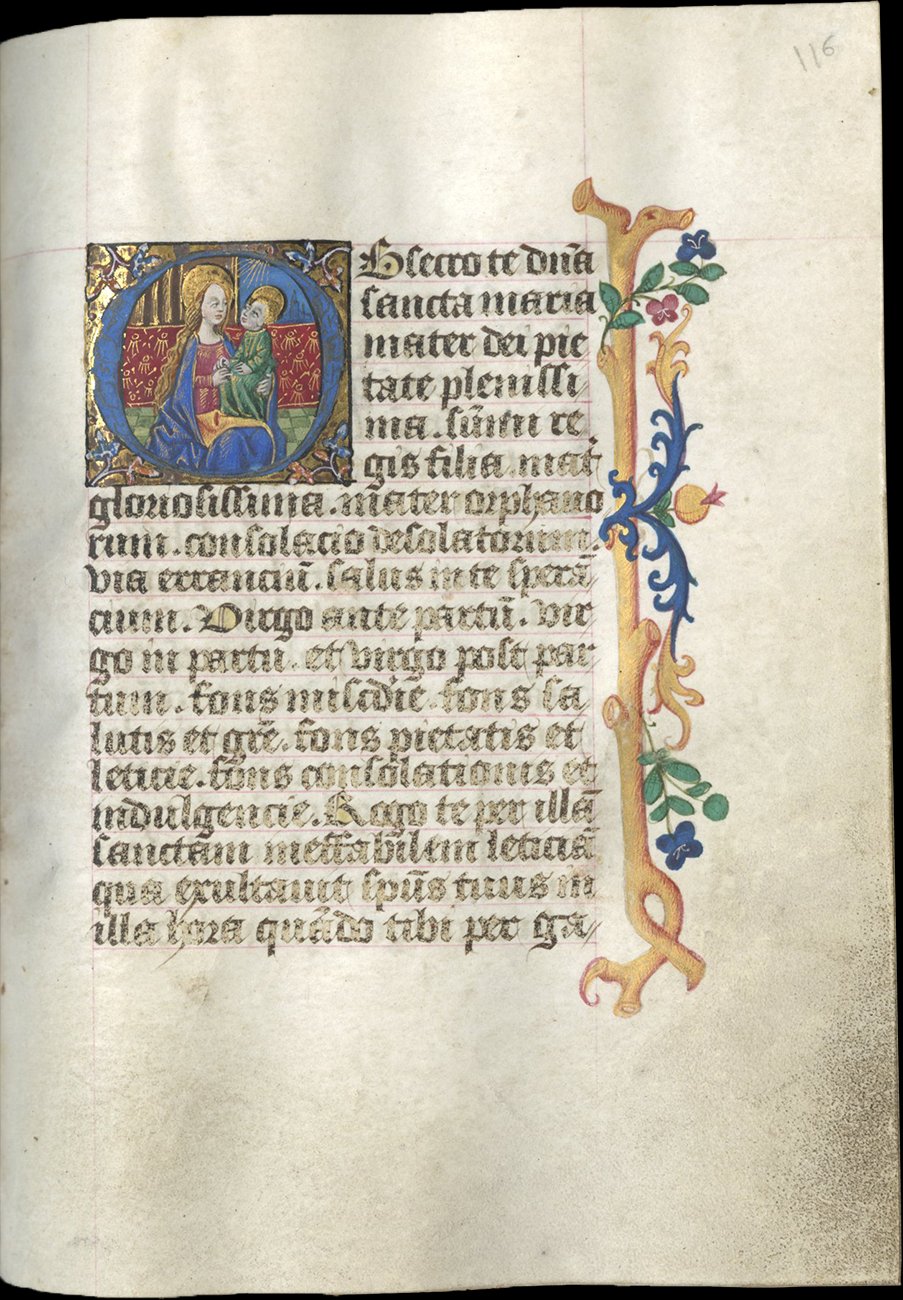 116
Obsecro te dn̄a
sancta maria
mater dei pie
tate plenissi
ma . sūmi re
gis filia mat̄
gloriosissima . māter orphano
rum . consolacio desolatorum .
via erranciū . salus in te sperā
cium . Virgo ante partū . vir
go in partu . et virgo post par
tum . fons miſcdīe . fons sa
lutis et grē . fons pietatis et
leticie . fons consolationis et
indulgencie . Rogo te per illā
sanctam ineffabilem leticiā
qua exultauit spūs tuus in
illa hora quādo tibi per ga//